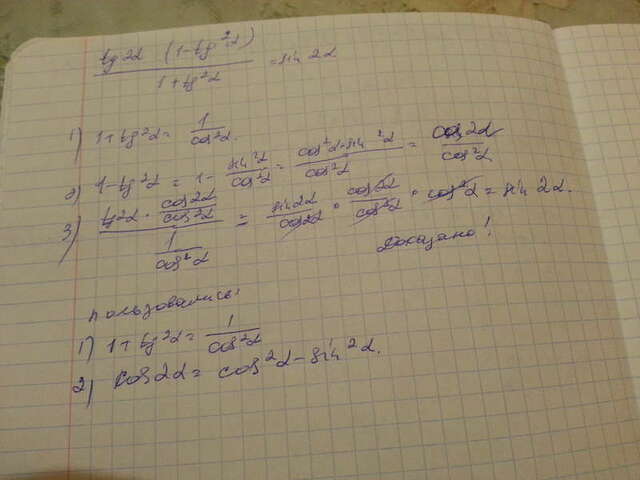 tg 2α (1-tg²α) / 1+tg²α = sin 2α
1) 1+tg²α = 1/cos²α.
2) 1-tg²α = 1 - sin²α/cos²α = cos²α-sin²α/cos²α = cos2α/cos²α
3) tg2α · cos2α/cos²α / 1/cos²α = sin2α/cos2α · cos2α/cos²α · cos²α = sin 2α.
Доказано!
пользовались:
1) 1+tg²α = 1/cos²α
2) cos2α = cos²α-sin²α.